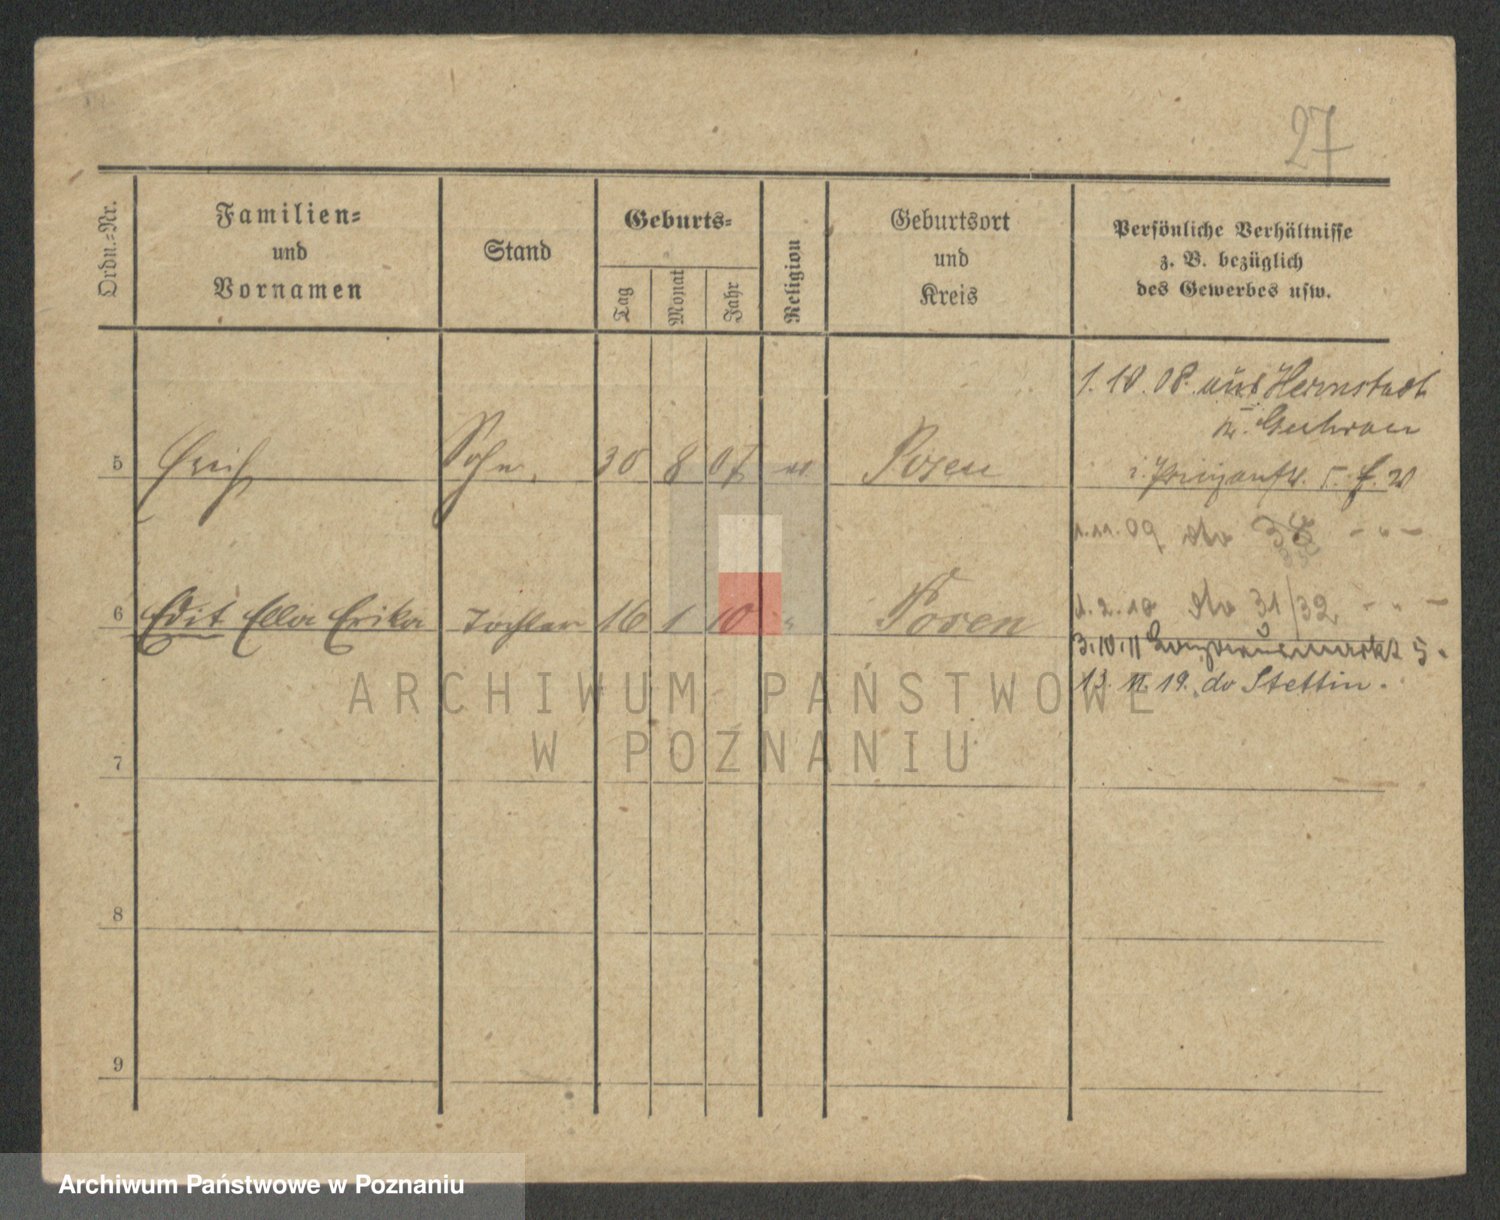 27
Ordn.-Nr.
Familien-
und
Vornamen
Stand
Geburts-
Tag
Monat
Jahr
Religion
Geburtsort
und
Kreis
Persönliche Verhältnisse
z. B. bezüglich
des Gewerbes usw.
1. 10. 08. aus Herrnstadt
Kr. Guhrau
5 Erich Sohn. 30 8 07 Posen
1. 11. 09 do
6 Edit Ella Erika Tochter 16 1 10 " Posen
1. 2. 10 do 31/32 - " -
3. 10. 11
13. 11. 19. do Stettin.
ARCHIWUM PAŃSTWOWE
W POZNANIU
7
8
9
Archiwum Państwowe w Poznaniu